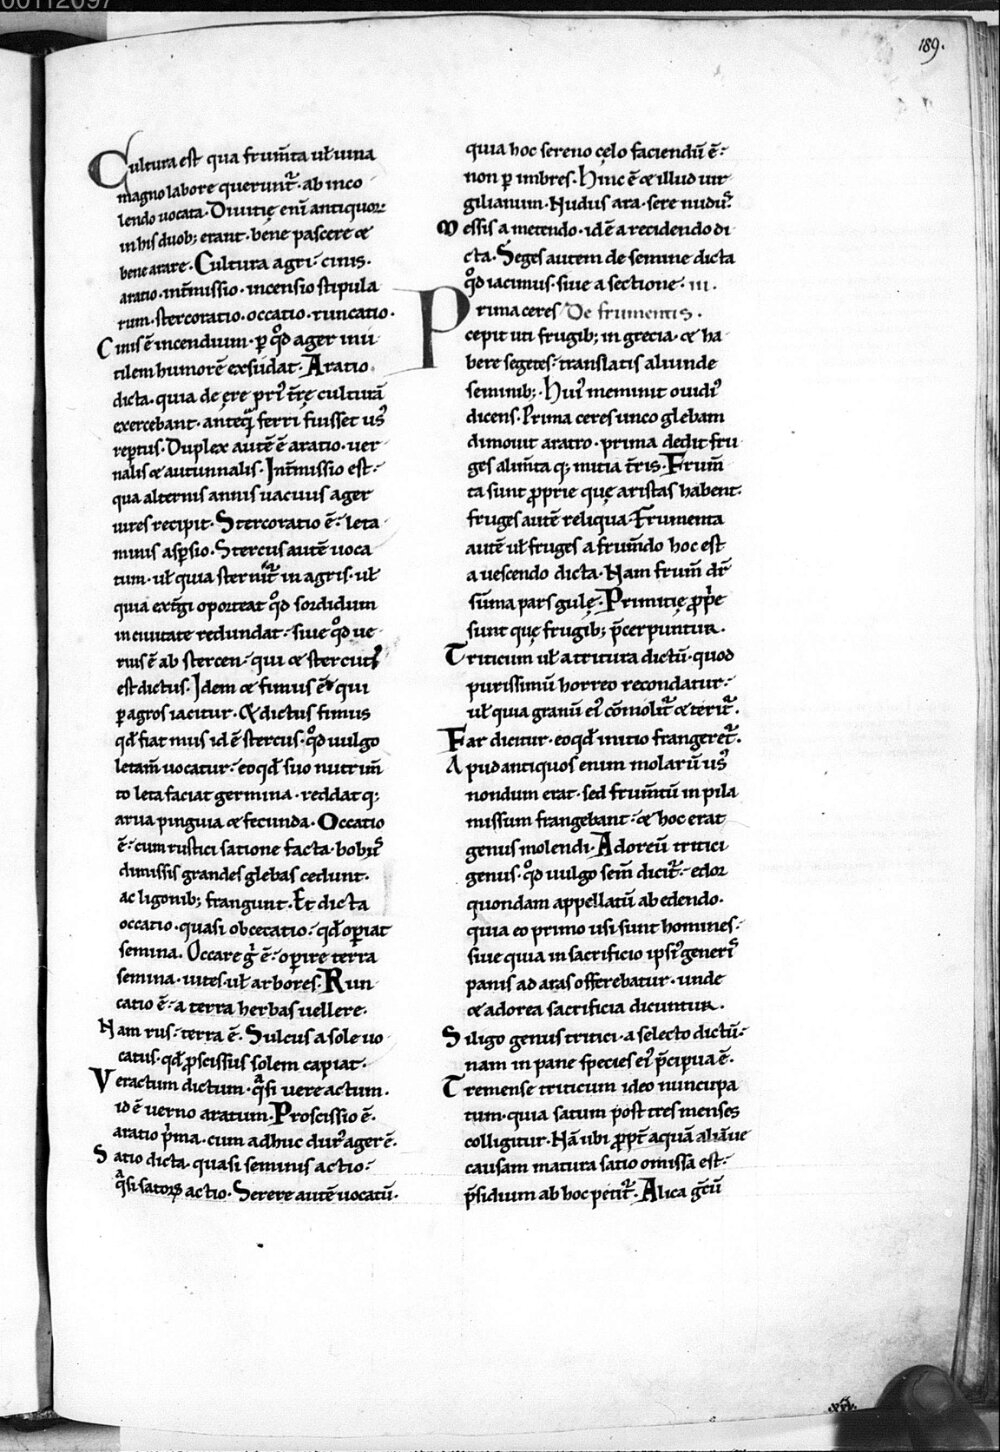 00112097
189.
Cultura est qua frum̄ta ul̄ uina
magno labore querunt᷑. ab inco
lendo uocata. Diuitię eni᷑ antiquoꝝ
in his duob; erant. bene pascere ⁊
bene arare. Cultura agri. cinis.
aratio. int̄missio. incensio stipula
rum. stercoratio. occatio. runcatio.
Cinis ē incendium. ꝑ qd̄ ager inu
tilem humorē exsudat. Aratio
dicta. quia de ęre pri᷑ t̄rę culturā
exercebant. anteq̄ ferri fuisset us᷑
reptus. Duplex autē ē aratio. uer
nalis ⁊ autunnalis. Int̄missio est.
qua alternis annis uacuus ager
uires recipit. Stercoratio ē. leta
minis asp̄sio. Stercus autē uoca
tum. ul̄ quia sternit᷑ in agris. ul̄
quia ext̄gi oporteat qd̄ sordidum
in ciuitate redundat. siue qd̄ ue
rius ē ab stercen. qui ⁊ stercut᷑
est dictus. Idem ⁊ fimus ē qui
ꝑ agros iacitur. Et dictus fimus
qd̄ fiat mus id ē stercus. qd̄ uulgo
letam̄ uocatur. eo qd̄ suo nutrim̄
to leta faciat germina. reddat q;
arua pinguia ⁊ fecunda. Occatio
ē. cum rustici satione facta. bobus᷑
dimissis grandes glebas cedunt.
ac ligonib; frangunt. Et dicta
occatio. quasi obcecatio. qd̄ oꝑiat
semina. Occare g̊ ē. oꝑire terra
semina. uites. ul̄ arbores. Run
catio ē. a terra herbas uellere.
Nam rus. terra ē. Sulcus a sole uo
catus. qd̄ ꝓscissus solem capiat.
Veractum dictum. qᵃsi uere actum.
id ē uerno aratum. Proscissio ē.
aratio p̄ma. cum adhuc dur᷑ ager ē.
Satio dicta. quasi seminis actio.
qᵃsi satoꝝ actio. Serere autē uocatū.
quia hoc sereno cęlo faciendū ē.
non ꝑ imbres. Hinc ē ⁊ illud uir
gilianum. Nudus ara. sere nudus᷑.
Messis a metendo. id ē a recidendo di
cta. Seges autem de semine dicta
qd̄ iacimus. siue a sectione. III.
Prima ceres De frumentis.
cepit uti frugib; in grecia. ⁊ ha
bere segetes. translatis aliunde
seminib;. Hui᷑ meminit ouidi᷑
dicens. Prima ceres unco glebam
dimouit aratro. prima dedit fru
ges alim̄ta q; mitia t̄ris. Frum̄
ta sunt ꝓprie quę aristas habent.
fruges autē reliqua. Frumenta
autē ul̄ fruges a frum̄do hoc est
a uescendo dicta. Nam frum̄ dr̄
sūma pars gulę. Primitię ꝓp̄e
sunt quę frugib; p̄cerpuntur.
Triticum ul̄ a tritura dictū. quod
purissimū horreo recondatur.
ul̄ quia granū ei᷑ cōmolit᷑ ⁊ terit᷑.
Far dicitur. eo qd̄ initio frangeret᷑.
Apud antiquos enim molarū us᷑
nondum erat. sed frum̄tū in pila
missum frangebant. ⁊ hoc erat
genus molendi. Adoreū tritici
genus. qd̄ uulgo sem̄ dicit᷑. edor
quondam appellatū ab edendo.
quia eo primo usi sunt homines.
siue quia in sacrificio ipsi᷑ generis᷑
panis ad aras offerebatur. unde
⁊ adorea sacrificia dicuntur.
Siligo genus tritici. a selecto dictū.
nam in pane species ei᷑ p̄cipua ē.
Tremense triticum ideo nuncupa
tum. quia satum post tres menses
colligitur. Nā ubi ꝓpt̄ aquā aliāue
causam matura satio omissa est.
p̄sidium ab hoc petit᷑. Alica grc̄ū